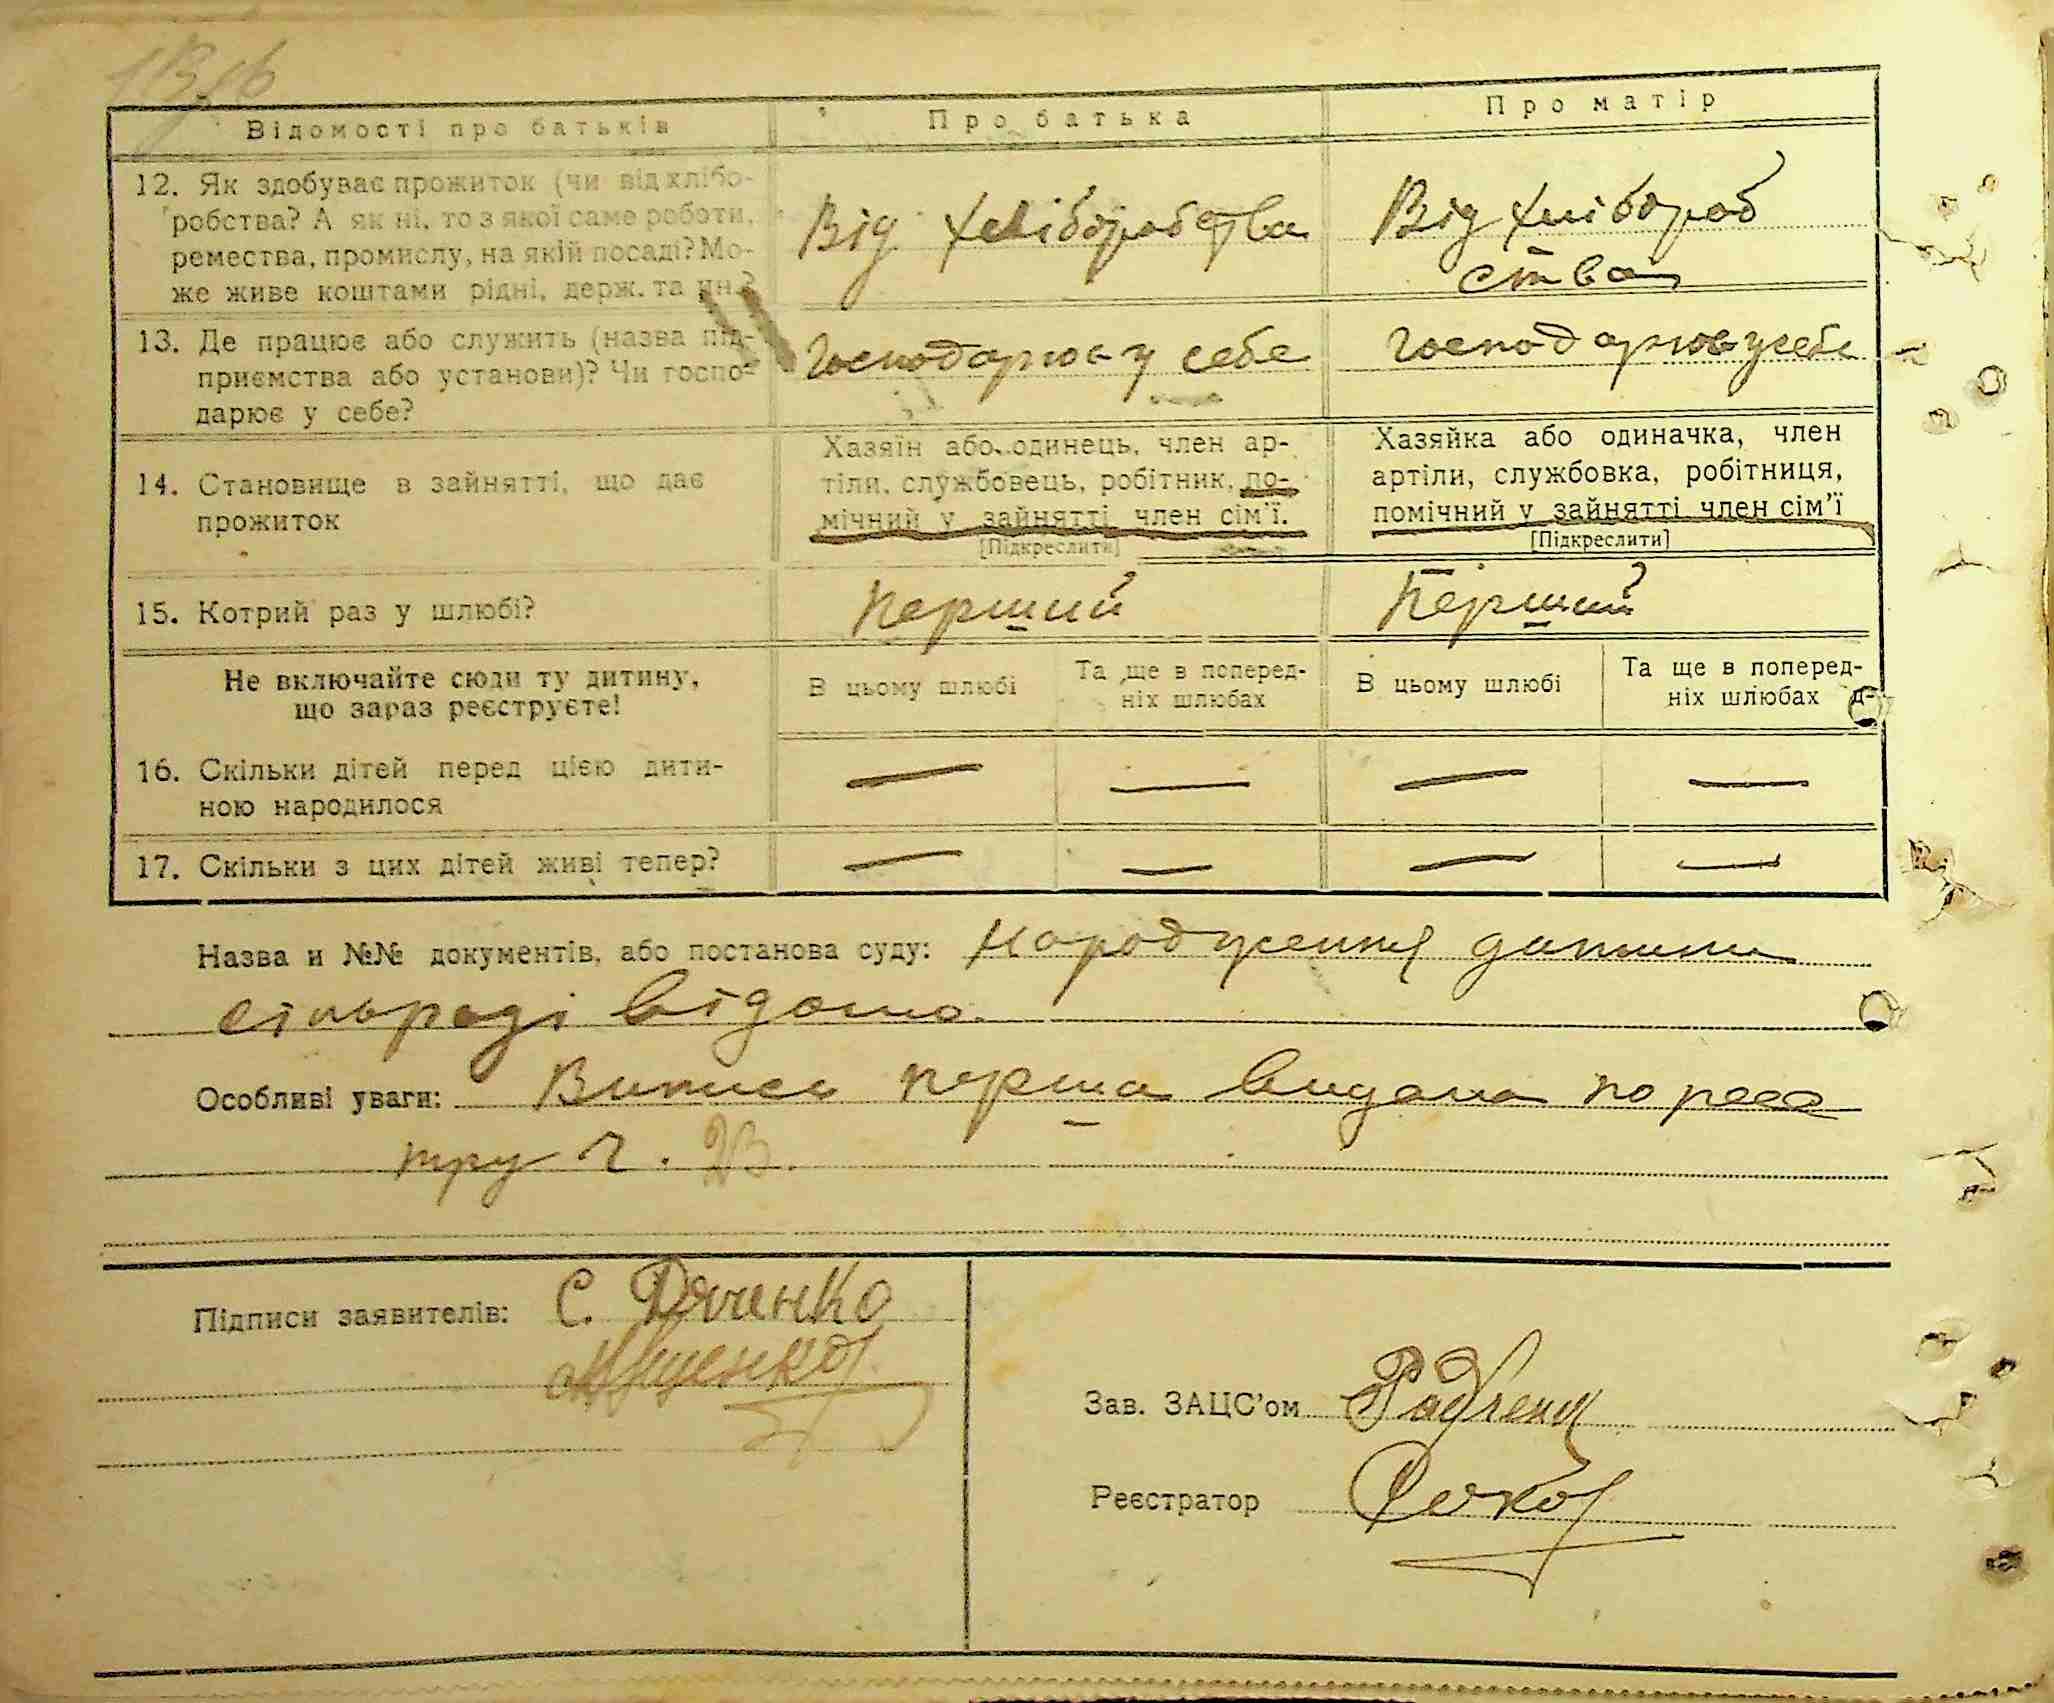 Відомості про батьків
Про батька
Про матір
12. Як здобуває прожиток (чи від хлібо-
робства? А як ні, то з якої саме роботи,
ремества, промислу, на якій посаді? Мо-
же живе коштами рідні, держ. та ин.?
Від хліборобства
Від хлібороб
ства
13. Де працює або служить (назва під-
приємства або установи)? Чи госпо-
дарює у себе?
Господарює у себе
Господарює у себе
14. Становище в зайнятті, що дає
прожиток
Хазяїн або одинець, член ар-
тіли, службовець, робітник, по-
мічний у зайнятті член сім'ї.
[Підкреслити]
Хазяйка або одиначка, член
артіли, службовка, робітниця,
помічний у зайнятті член сім'ї
[Підкреслити]
15. Котрий раз у шлюбі?
Перший
Перший
Не включайте сюди ту дитину,
що зараз реєструєте!
В цьому шлюбі
Та ще в поперед-
ніх шлюбах
В цьому шлюбі
Та ще в поперед-
ніх шлюбах
16. Скільки дітей перед цією дити-
ною народилося
— — — —
17. Скільки з цих дітей живі тепер?
— — — —
Назва и №№ документів, або постанова суду: Народження дитини
сільраді відомо.
Особливі уваги: Випись перша видана по реєс
тру ч. 23.
Підписи заявителів: С. Дяченко
Зав. ЗАЦС'ом
Реєстратор